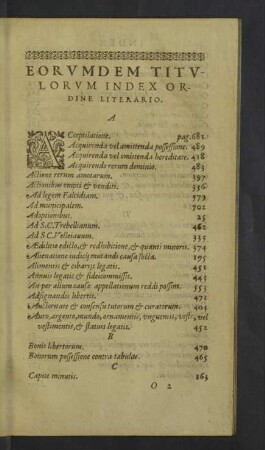 EORVMDEM TITV-
LORVM INDEX OR-
DINE LITERARIO.
A
ACceptilatione. pag. 682
Acquirenda vel amittenda possessione. 489
Acquirenda vel omittenda hereditate. 438
Acquirendo rerum dominio. 483
Actione rerum amotarum. 397
Actionibus empti & venditi. 336
Ad legem Falcidiam. 379
Ad municipalem. 702
Adoptionibus. 25
Ad S.C. Trebellianum. 462
Ad S.C. Velleianum. 335
Ædilitio edicto, & redhibitione, & quanti minoris. 374
Alienatione iudicij mutandi causa facta. 195
Alimentis & cibariis legatis. 451
Annuis legatis & fideicommissis. 445
An per alium causæ appellationum reddi possint.
Adsignandis libertis. 472
Auctoritate & consensu tutorum & curatorum. 405
Auro, argento, mundo, ornamentis, vnguentis, veste, vel
vestimentis, & statuis legatis. 452
B
Bonis libertorum. 470
Bonorum possessione contra tabulas. 465
C
Capite minutis. 163
O 2